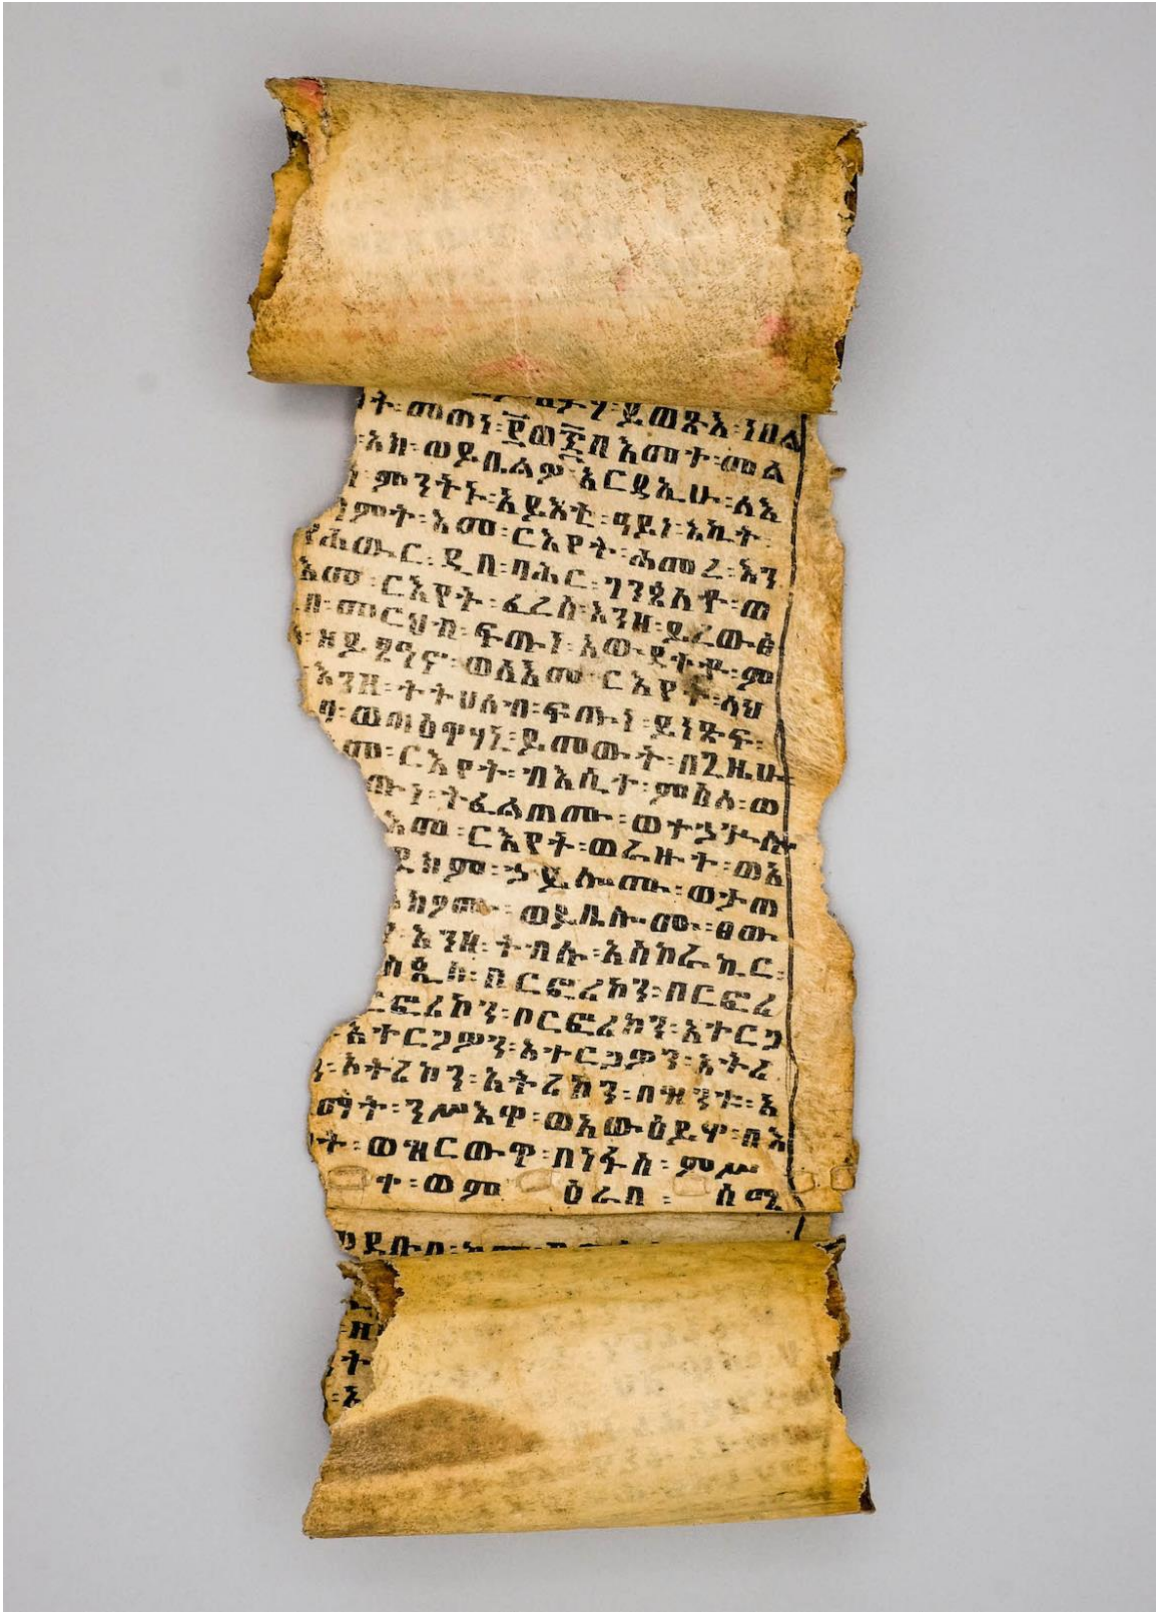 ት፡መጠነ፡፪ወ፷በእመት፡መል
አክ፡ወይቤልዎ፡አርዳኢሁ፡ለእ
ምንትኑ፡አይእቲ፡ዓይነ፡እኪት፡
ምት፡እመ፡ርእየት፡ሐመረ፡እን
የሐውር፡ዲበ፡ባሕር፡ግንጵሊቶ፡ወ
እመ፡ርእየት፡ፈረስ፡እንዘ፡ይረውፅ
በ፡መርህብ፡ፍጡነ፡አውደቀቶ፡ም
ዘይፄዓኖ፡ወለእመ፡ርእየት፡ላህ
እንዘ፡ትትሀለብ፡ፍጡነ፡ይነጽፍ፡
ይመውት፡በጊዜሁ
መ፡ርእየት፡ብእሲተ፡ምስለ፡ወ
ጡነ፡ትፈልጠሙ፡ወተኃጕሎ
እመ፡ርእየት፡ወሬዙት፡ወአ
ደክም፡ኃይሎሙ፡ወታጠ
ወይቤሎሙ፡ፀው
እንዘ፡ትብሉ፡አስከሬኪር፡
በርፎረኮን፡በርፎረ
ርፎረኮን፡በርፎረኮን፡አተርጋ
አተርጋዎን፡አተርጋዎን፡አትረ
አትረኮን፡አትረኮን፡በዝንቱ፡አ
ማት፡ንሥእዋ፡ወአውዕይዋ፡በእ
ት፡ወዝርውዋ፡በነፋስ፡ምሥ
ተ፡ወም ዕራበ፡ ሰሜ
ዘ
ት